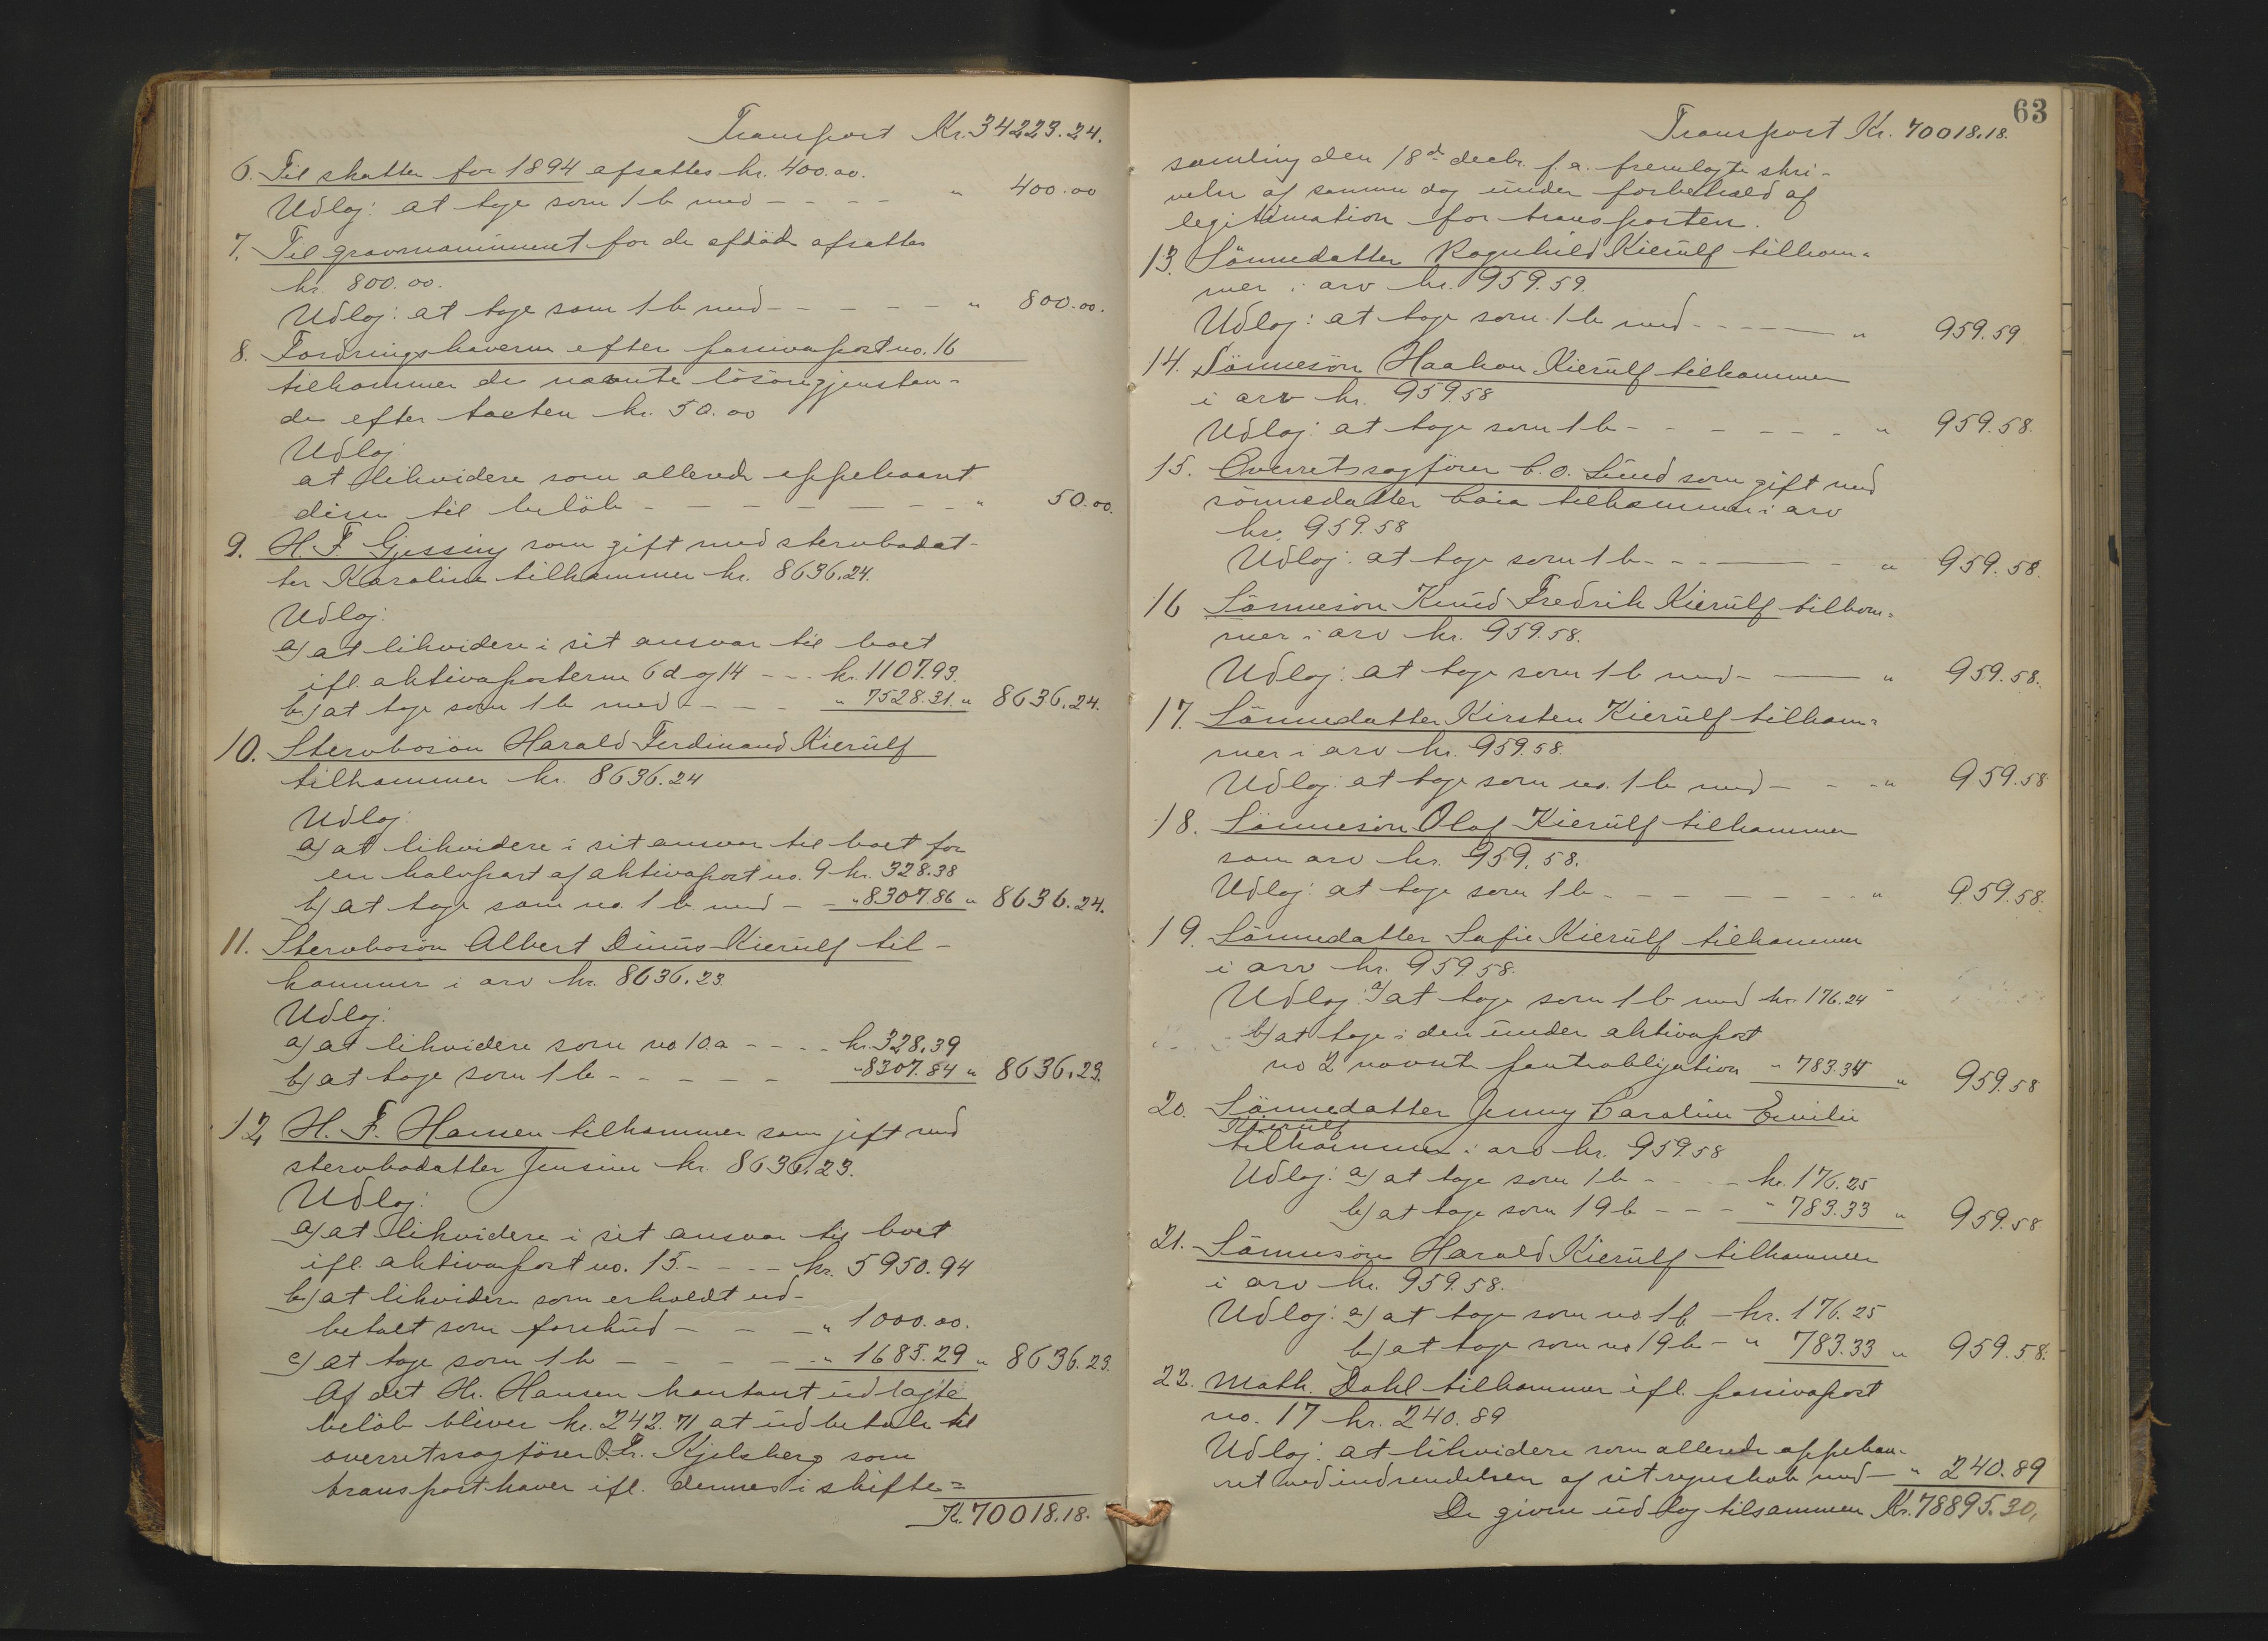 Transport Kr. 34223.24.
6. Til skatter for 1894 afsættes kr. 400.00.
Udlæg: at tage som 1 b med - - - - " 400.00
7. Til gravmonument for de afdøde afsættes
kr. 800.00.
Udlæg: at tage som 1 b med - - - - - " 800.00.
8. Fordringshaveren efter passivapost no. 16
tilkommer de nævnte løsøregjenstan-
de efter taxten kr. 50.00
Udlæg:
at likvidere som allerede oppebaaret
disse til beløb - - - - - - - " 50.00.
9. H. F. Gjessing som gift med stervbodat-
ter Karoline tilkommer kr. 8636.24.
Udlæg:
a) at likvidere i sit ansvar til boet
ifl. aktivaposterne 6 d og 14 - - - kr. 1107.93.
b) at tage som 1 b med - - - - " 7528.31. " 8636.24.
10. Stervbosøn Harald Ferdinand Kierulf
tilkommer kr. 8636.24
Udlæg:
a) at likvidere i sit ansvar til boet for
en halvpart af aktivapost no. 9 kr. 328.38
b) at tage som no. 1 b med - - " 8307.86 " 8636.24.
11. Stervbosøn Albert Dinus Kierulf til-
kommer i arv kr. 8636.23
Udlæg:
a) at likvidere som no 10 a - - - - kr. 328.39
b) at tage som 1 b - - - - - " 8307.84 " 8636.23.
12. H. F. Hansen tilkommer som gift med
stervbodatter Jensine kr. 8636.23.
Udlæg:
a) at likvidere i sit ansvar til boet
ifl. aktivapost no. 15. - - - - kr. 5950.94
b) at likvidere som erholdt ud-
betalt som forskud - - - " 1000.00.
c) at tage som 1 b - - - - - " 1685.29 " 8636.23.
Af det Hr. Hansen kontant udlagte
beløb bliver kr. 242.71 at udbetale til
overretssagfører O. Fr. Kjelsberg som
transporthaver ifl. dennes i skifte=
Kr. 70018.18.
63
Transport Kr. 70018.18.
samling den 18de decbr. f. a. fremlagte skri-
velse af samme dag under forbehold af
legitimation for transporten.
13. Sønnedatter Ragnhild Kierulf tilkom-
mer i arv kr. 959.59.
Udlæg: at tage som 1 b med - - - - - " 959.59
14. Sønnesøn Haakon Kierulf tilkommer
i arv kr. 959.58
Udlæg: at tage som 1 b - - - - - - " 959.58.
15. Overretssagfører C. O. Lund som gift med
sønnedatter Caia tilkommer i arv
kr. 959.58
Udlæg: at tage som 1 b - - - - - " 959.58.
16 Sønnesøn Knud Fredrik Kierulf tilkom-
mer i arv kr. 959.58.
Udlæg: at tage som 1 b med - - " 959.58.
17. Sønnedatter Kirsten Kierulf tilkom-
mer i arv kr. 959.58.
Udlæg: at tage som no. 1 b med - - - " 959.58
18. Sønnesøn Olaf Kierulf tilkommer
som arv kr. 959.58.
Udlæg: at tage som 1 b - - - - - - - " 959.58.
19. Sønnedatter Sofie Kierulf tilkommer
i arv kr. 959.58.
Udlæg: a) at tage som 1 b med kr. 176.24
b) at tage i den under aktivapost
no 2 nævnte panteobligation " 783.34 " 959.58
20. Sønnedatter Jenny Caroline Emilie
Kierulf
tilkommer i arv kr. 959.58
Udlæg: a) at tage som 1 b - - - - kr. 176.25
b) at tage som 19 b - - - " 783.33 " 959.58
21. Sønnesøn Harald Kierulf tilkommer
i arv kr. 959.58.
Udlæg: a) at tage som no 1 b - kr. 176.25
b) at tage som no 19 b - " 783.33 " 959.58.
22. Math. Dahl tilkommer ifl. passivapost
no. 17 kr. 240.89
Udlæg: at likvidere som allerede oppebaa-
ret ved indsendelsen af sit regnskab med - " 240.89
De givne udlæg tilsammen Kr. 78895.30,